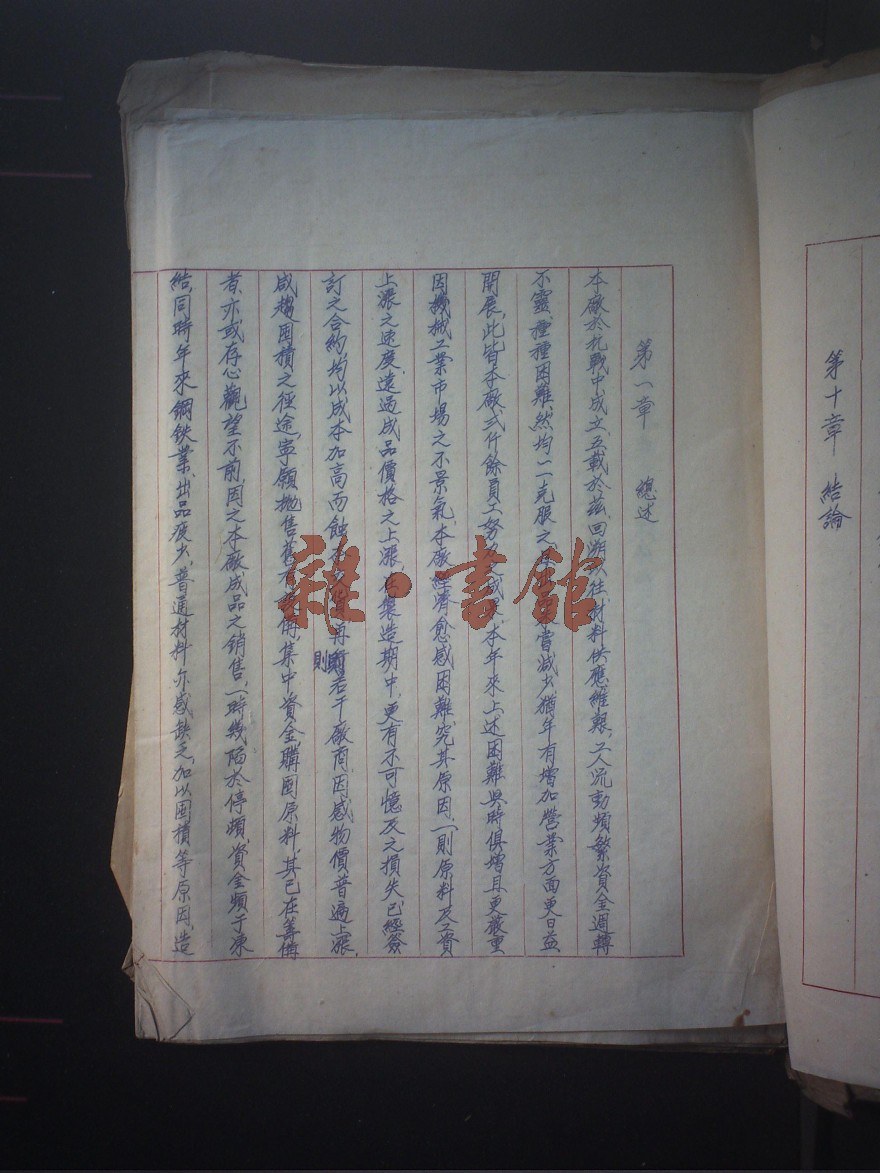 第十章 結論
第一章 總述
本廠於抗戰中成立，五載於茲，回溯以往，材料供應維艱，工人流動頻繁，資金週轉
不靈，種種困難，然均一一克服之，嘗減少，猶年有增加，營業方面更日益
開展，此皆本廠弍仟餘員工努本年來上述困難與時俱增，且更嚴重
因機械工業市場之不景氣，本廠經濟愈感困難，究其原因，一則原料及工資
上漲之速度，遠過成品價格之上漲，在製造期中，更有不可憶及之損失，已經簽
訂之合約，均以成本加高而蝕再則若干廠商，因感物價普遍上漲，
咸趨囤積之徑途，寧願拋售舊有集中資金，購囤原料，其已在籌備
者，亦或存心觀望不前，因之本廠成品之銷售，一時幾陷於停頓，資金頻于凍
結，同時年來鋼鉄業，出品疲少，普通材料亦感缺乏，加以囤積等原因，造
雜·書館